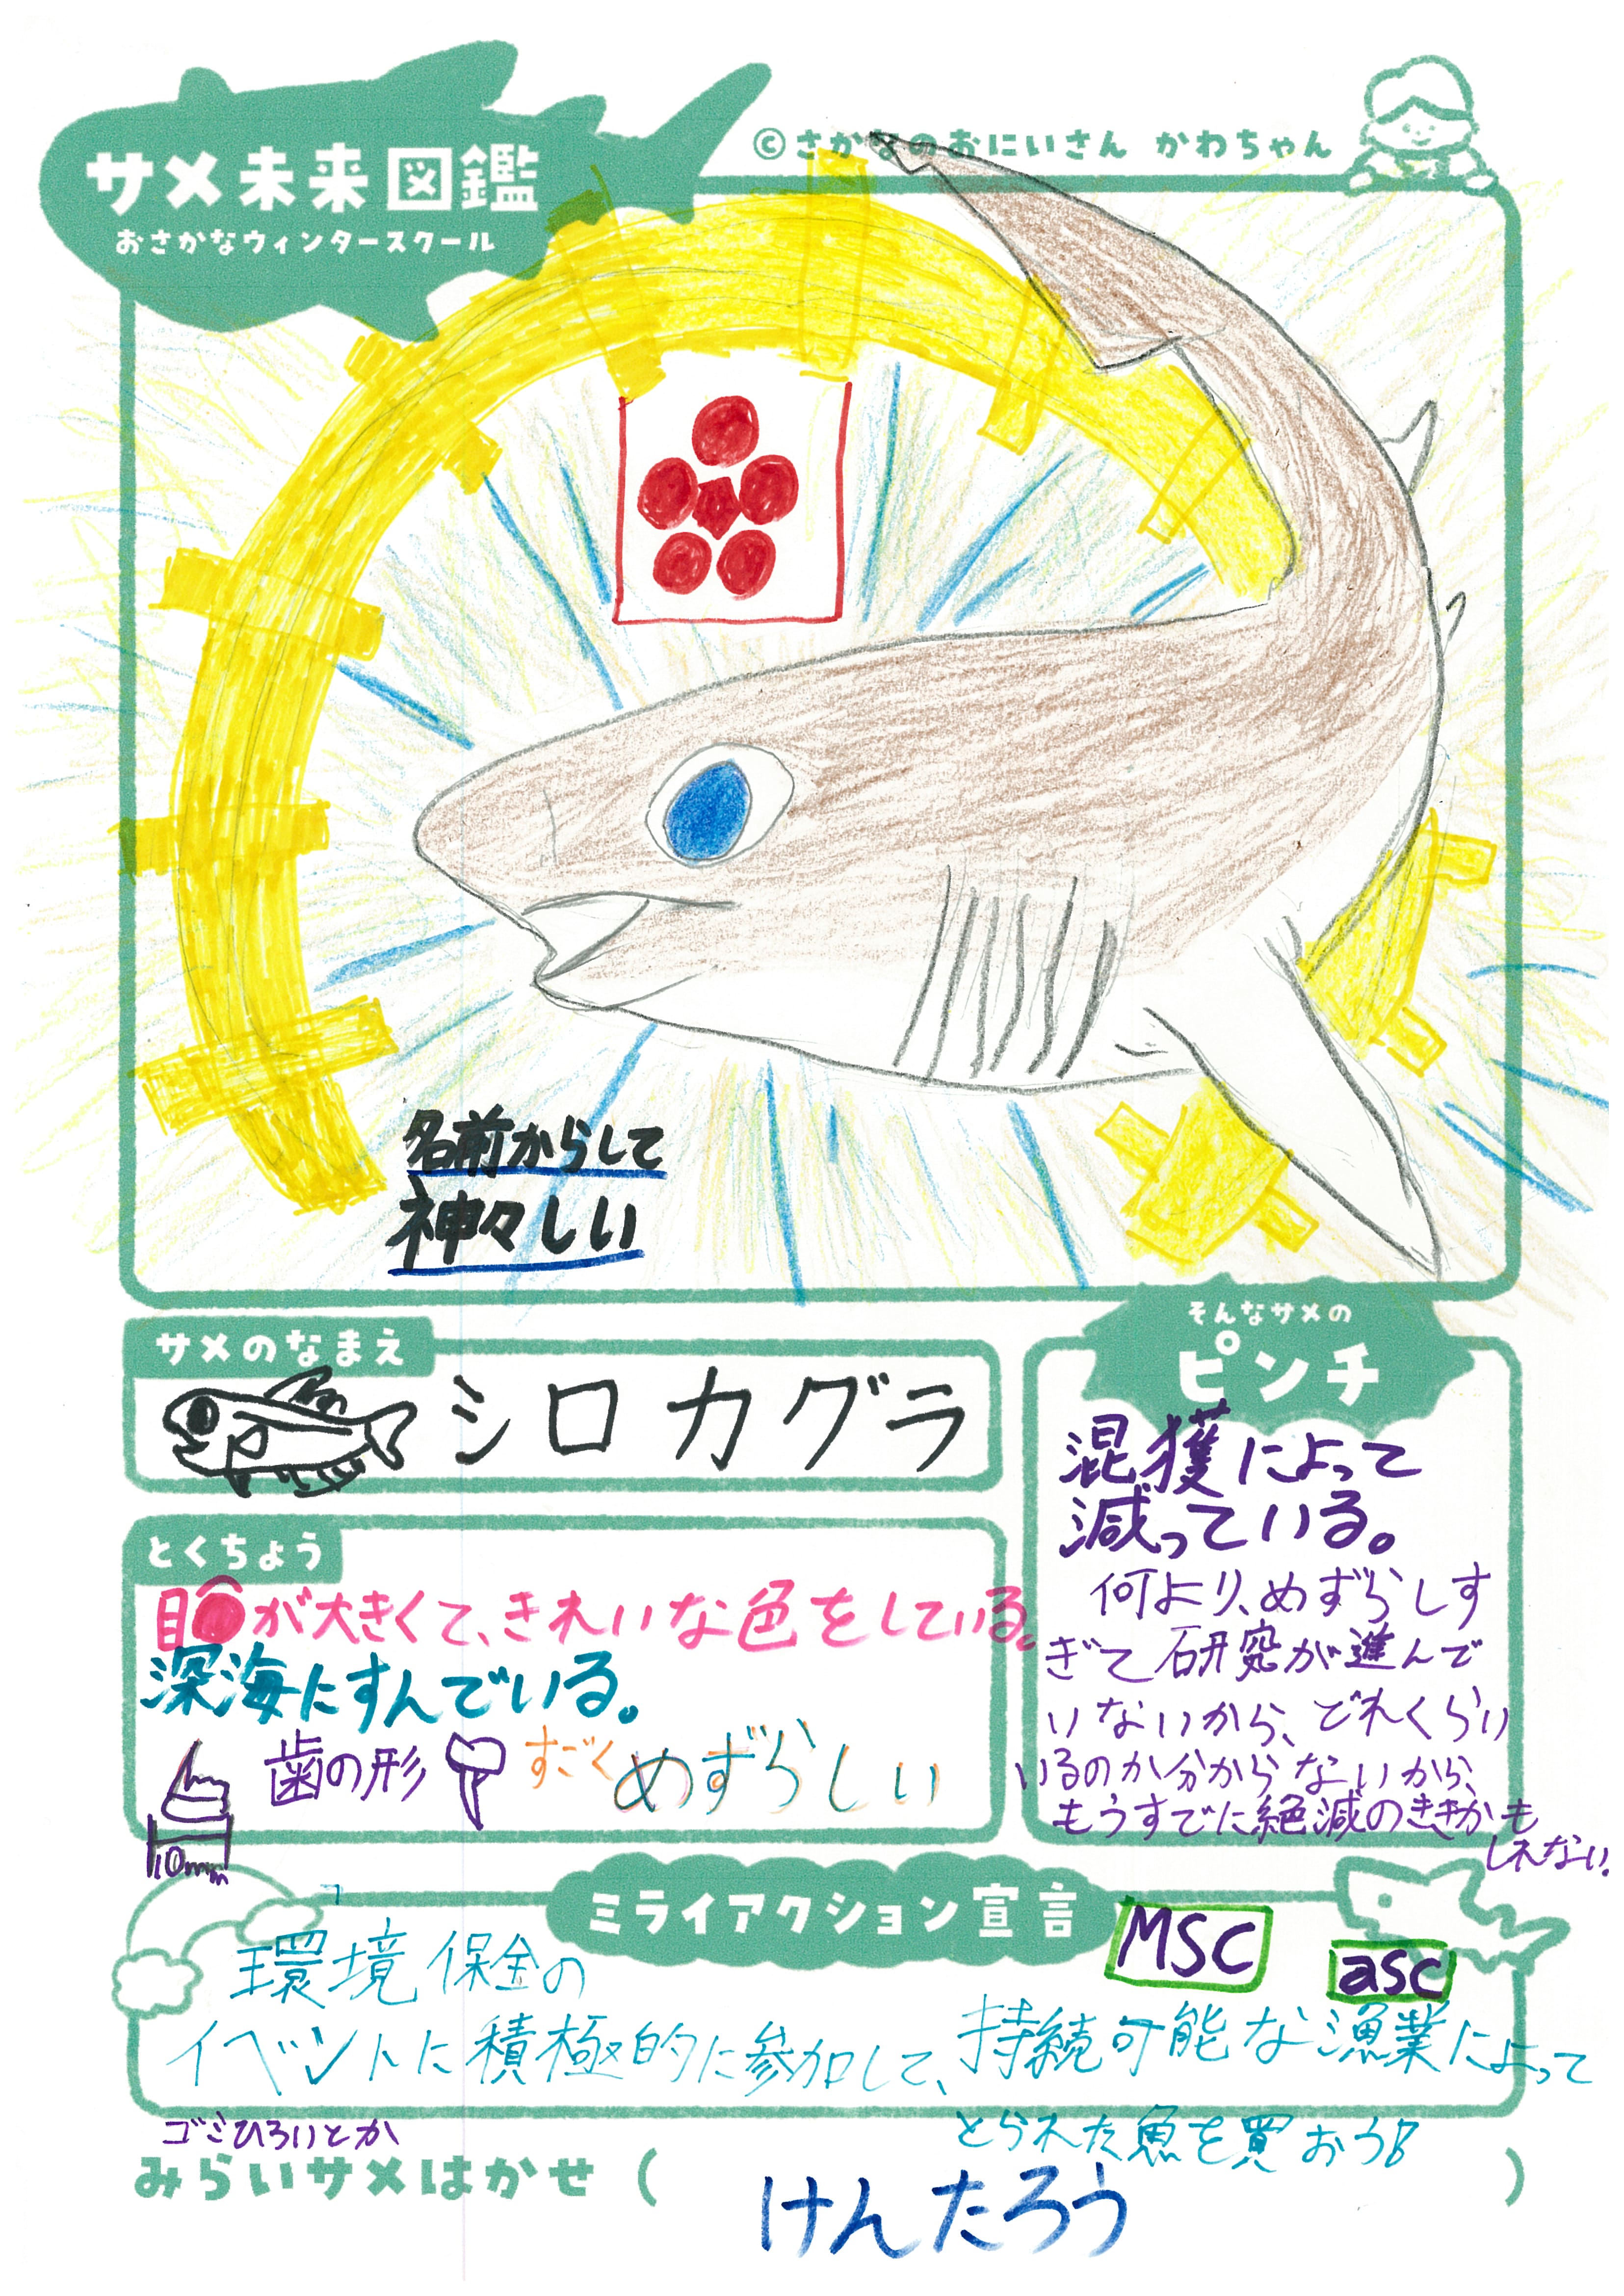 サメ未来図鑑
おさかなウィンタースクール
©さかなのおにいさん かわちゃん
名前からして
神々しい
サメのなまえ
シロカグラ
とくちょう
目が大きくて、きれいな色をしている。
深海にすんでいる。
歯の形
すごくめずらしい
10mm
そんなサメの
ピンチ
混獲によって
減っている。
何より、めずらしす
ぎて研究が進んで
いないから、どれくらい
いるのか分からないから、
もうすでに絶滅のききかも
しれない。
ミライアクション宣言
MSC
asc
環境保全の
イベントに積極的に参加して、持続可能な漁業によって
とられた魚を買おう
ゴミひろいとか
みらいサメはかせ（けんたろう）